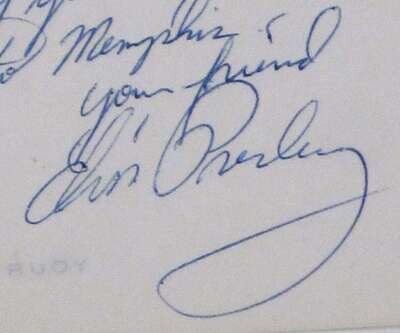 to Memphis.
your friend
Elvis Presley